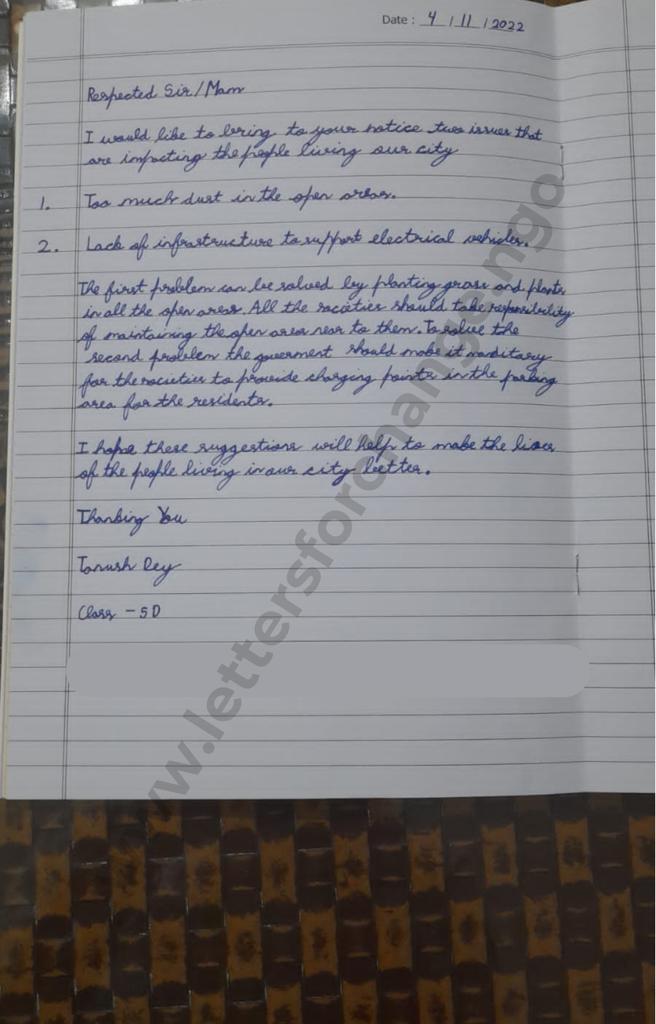 Date : 4 / 11 / 2022
Respected Sir/Mam
I would like to bring to your notice two issues that
are impacting the people living our city
1. Too much dust in the open areas.
2. Lack of infrastructure to support electrical vehicles.
The first problem can be solved by planting grass and plants
in all the open areas. All the societies should take responsibility
of maintaining the open area near to them. To solve the
second problem the goverment should make it manditary
for the societies to provide charging points in the parking
area for the residents.
I hope these suggestions will help to make the lives
of the people living in our city better.
Thanking You
Tanush Dey
Class - 5D
www.lettersforchange.ngo